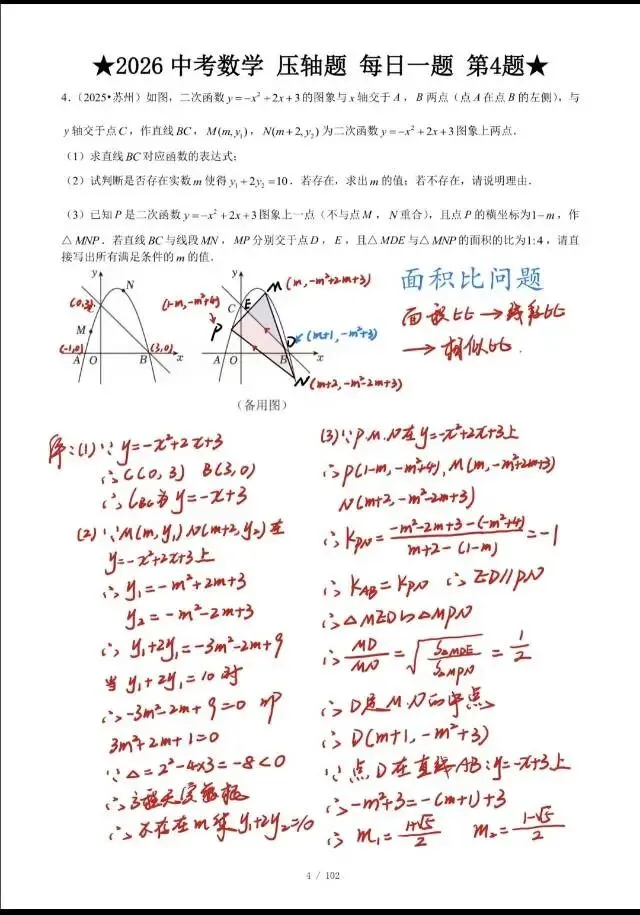 ★2026 中考数学 压轴题 每日一题 第4题★
4.（2025•苏州）如图，二次函数 y=-x²+2x+3 的图象与 x 轴交于 A，B 两点（点 A 在点 B 的左侧），与
y 轴交于点 C，作直线 BC，M(m,y₁)，N(m+2,y₂) 为二次函数 y=-x²+2x+3 图象上两点．
（1）求直线 BC 对应函数的表达式；
（2）试判断是否存在实数 m 使得 y₁+2y₂=10．若存在，求出 m 的值；若不存在，请说明理由．
（3）已知 P 是二次函数 y=-x²+2x+3 图象上一点（不与点 M，N 重合），且点 P 的横坐标为 1-m，作
△MNP．若直线 BC 与线段 MN，MP 分别交于点 D，E，且 △MDE 与 △MNP 的面积的比为 1:4，请直
接写出所有满足条件的 m 的值．
y
N
(0,3)
C
M
(-1,0)
A
O
(3,0)
B
x
y
M(m,-m²+2m+3)
(1-m,-m²+4)
C
E
P
D
(m+1,-m²+3)
A
O
B
x
N(m+2,-m²-2m+3)
（备用图）
面积比问题
面积比→线段比
→相似比.
解:(1)∵y=-x²+2x+3
∴C(0,3) B(3,0)
∴l_BC为y=-x+3
(2)∵M(m,y₁) N(m+2,y₂)在
y=-x²+2x+3上
∴y₁=-m²+2m+3
y₂=-m²-2m+3
∴y₁+2y₂=-3m²-2m+9
当y₁+2y₂=10时
∴-3m²-2m+9=0 即
3m²+2m+1=0
∵△=2²-4×3=-8<0
∴方程无实数根
∴不存在m使y₁+2y₂=10
(3)∵P.M.N在y=-x²+2x+3上
∴P(1-m,-m²+4),M(m,-m²+2m+3)
N(m+2,-m²-2m+3)
∴K_PN=\frac{-m²-2m+3-(-m²+4)}{m+2-(1-m)}=-1
∴K_AB=K_PN ∴ED∥PN
∴△MED∽△MPN
∴\frac{MD}{MN}=\sqrt{\frac{S△MDE}{S△MPN}}=\frac{1}{2}
∴D是M.N的中点
∴D(m+1,-m²+3)
∵点D在直线AB:y=-x+3上
∴-m²+3=-(m+1)+3
∴m₁=\frac{1+√5}{2} m₂=\frac{1-√5}{2}
4 / 102